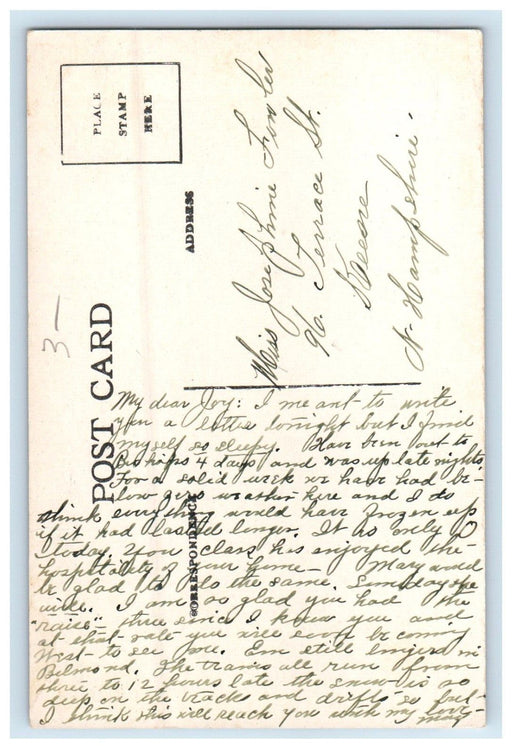 PLACE
STAMP
HERE
ADDRESS
POST CARD
CORRESPONDENCE
3-
Miss Josephine Fowler
96. Terrace St.
Keene
N. Hampshire.
My dear Joy: I meant to write
you a letter tonight but I find
myself so sleepy. Have been out to
Bishops 4 days and was up late nights.
For a solid week we have had be-
low zero weather here and I do
think everything would have frozen up
if it had lasted longer. It is only 0
today. Your class has enjoyed the
hospitality of your home - Mary would
be glad to do the same. Someday she
will. I am so glad you had the
"raise" - three since I knew you and
at that rate you will soon be coming
West - to see me. Em still lingers in
Belmond. The trains all run from
three to 12 hours late the snow is so
deep on the track and drifts so ful-
I think this will reach you with my love
Mary -